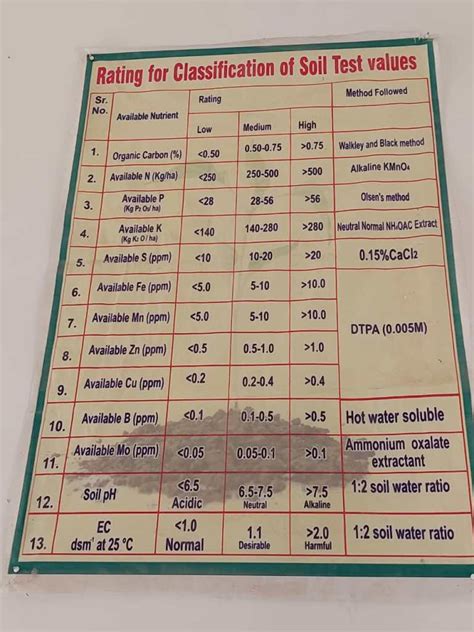 Rating for Classification of Soil Test values
Sr. No. Available Nutrient Rating Method Followed
Low Medium High
1. Organic Carbon (%) <0.50 0.50-0.75 >0.75 Walkley and Black method
2. Available N (Kg/ha) <250 250-500 >500 Alkaline KMnO4
3. Available P (Kg P2 O5/ ha) <28 28-56 >56 Olsen's method
4. Available K (Kg K2 O / ha) <140 140-280 >280 Neutral Normal NH4OAC Extract
5. Available S (ppm) <10 10-20 >20 0.15%CaCl2
6. Available Fe (ppm) <5.0 5-10 >10.0
7. Available Mn (ppm) <5.0 5-10 >10.0 DTPA (0.005M)
8. Available Zn (ppm) <0.5 0.5-1.0 >1.0
9. Available Cu (ppm) <0.2 0.2-0.4 >0.4
10. Available B (ppm) <0.1 0.1-0.5 >0.5 Hot water soluble
11. Available Mo (ppm) <0.05 0.05-0.1 >0.1 Ammonium oxalate extractant
12. Soil pH <6.5 6.5-7.5 >7.5 1:2 soil water ratio
Acidic Neutral Alkaline
13. EC <1.0 1.1 >2.0 1:2 soil water ratio
dsm¹ at 25 °C Normal Desirable Harmful